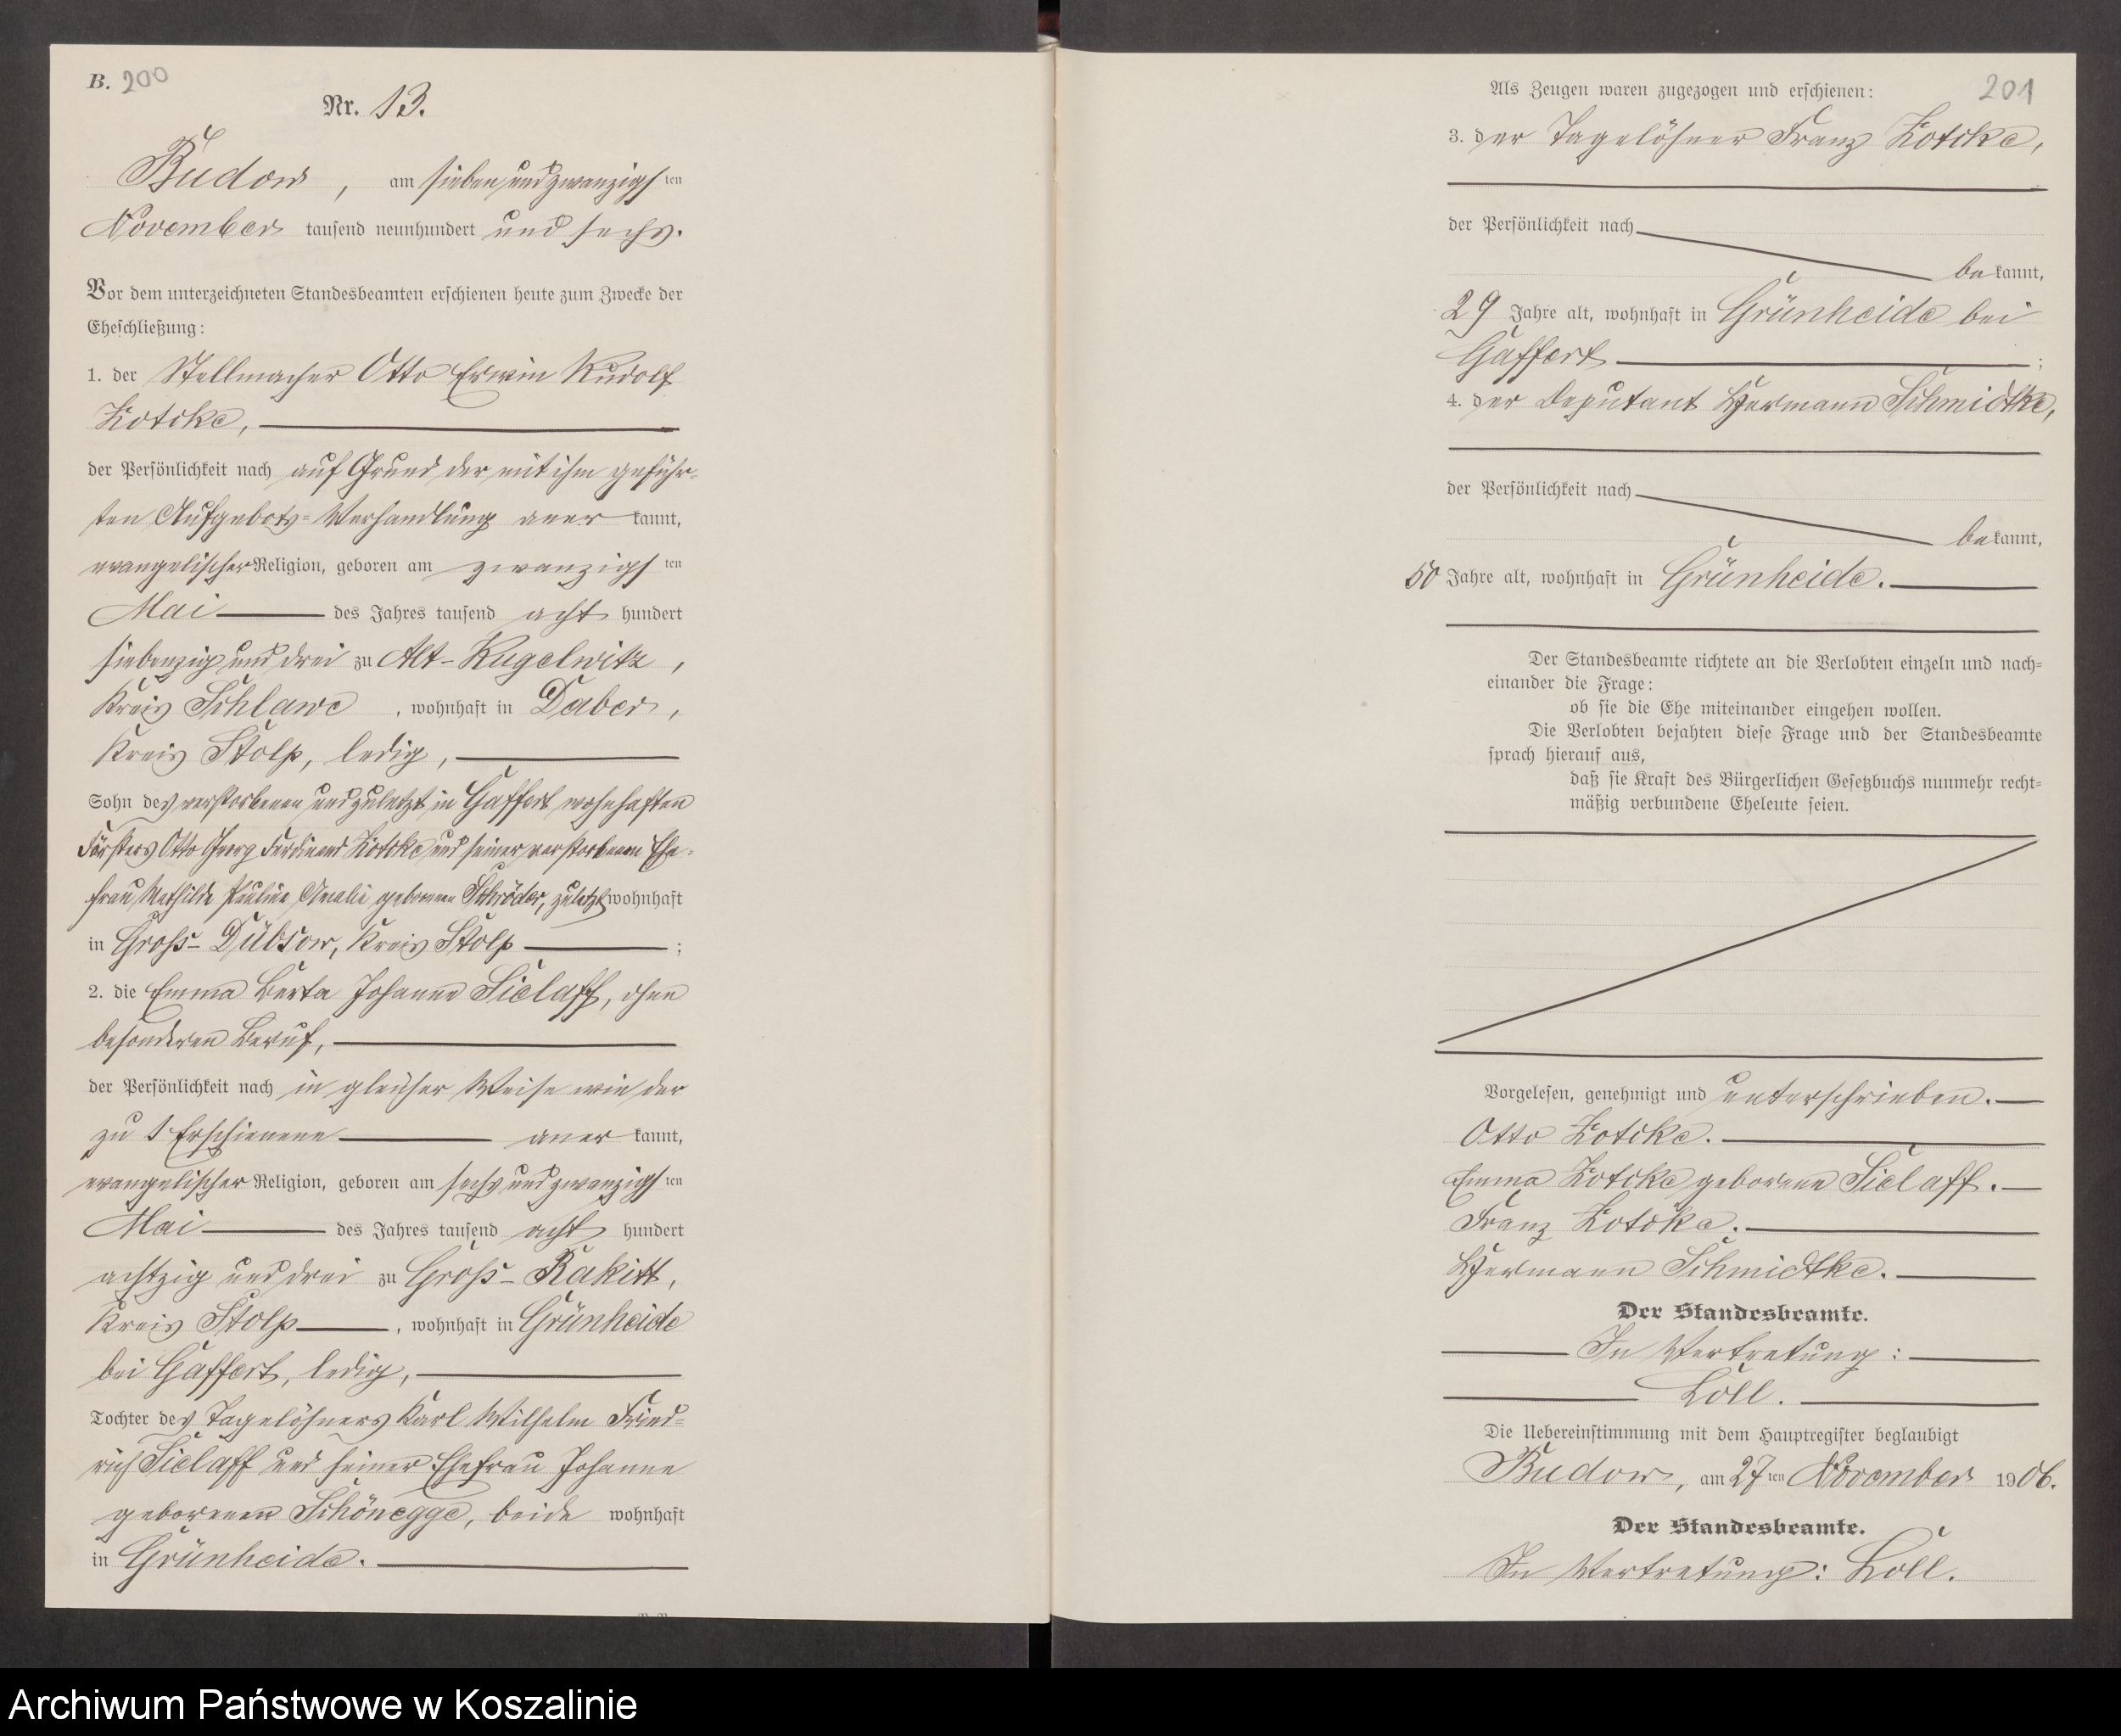 B. 200
Nr. 13.
Budow, am sieben und zwanzigsten
November tausend neunhundert und sechs.
Vor dem unterzeichneten Standesbeamten erschienen heute zum Zwecke der
Eheschließung:
1. der Stellmacher Otto Erwin Rudolf
Kotcke,
der Persönlichkeit nach auf Grund der mit ihm geführ-
ten Aufgebots-Verhandlung anerkannt,
evangelischer Religion, geboren am zwanzigsten
Mai des Jahres tausend acht hundert
siebenzig und drei zu Alt-Kugelwitz,
Kreis Schlawe, wohnhaft in Daber,
Kreis Stolp, ledig,
Sohn des verstorbenen und zuletzt in Gaffert wohnhaften
Försters Otto Georg Ferdinand Kotcke und seiner verstorbenen Ehe-
frau Mathilde Pauline Amalie geborenen Schröder, zuletzt wohnhaft
in Groß-Dübsow, Kreis Stolp;
2. die Emma Berta Johanne Sielaff, ohne
besonderen Beruf,
der Persönlichkeit nach in gleicher Weise wie der
zu 1 Erschienene anerkannt,
evangelischer Religion, geboren am sechs und zwanzigsten
Mai des Jahres tausend acht hundert
achtzig und drei zu Groß-Rakitt,
Kreis Stolp, wohnhaft in Grünheide
bei Gaffert, ledig,
Tochter des Tagelöhners Karl Wilhelm Fried-
rich Sielaff und seiner Ehefrau Johanne
geborenen Schönegge, beide wohnhaft
in Grünheide.
Als Zeugen waren zugezogen und erschienen: 201
3. der Tagelöhner Franz Kotcke,
der Persönlichkeit nach
bekannt,
29 Jahre alt, wohnhaft in Grünheide bei
Gaffert;
4. der Deputant Hermann Schmidtke,
der Persönlichkeit nach
bekannt,
50 Jahre alt, wohnhaft in Grünheide.
Der Standesbeamte richtete an die Verlobten einzeln und nach-
einander die Frage:
ob sie die Ehe miteinander eingehen wollen.
Die Verlobten bejahten diese Frage und der Standesbeamte
sprach hierauf aus,
daß sie Kraft des Bürgerlichen Gesetzbuchs nunmehr recht-
mäßig verbundene Eheleute seien.
Vorgelesen, genehmigt und unterschrieben.
Otto Kotcke.
Emma Kotcke geborene Sielaff.
Franz Kotcke.
Hermann Schmidtke.
Der Standesbeamte.
In Vertretung:
Loll.
Die Uebereinstimmung mit dem Hauptregister beglaubigt
Budow, am 27ten November 1906.
Der Standesbeamte.
In Vertretung: Loll.
Archiwum Państwowe w Koszalinie